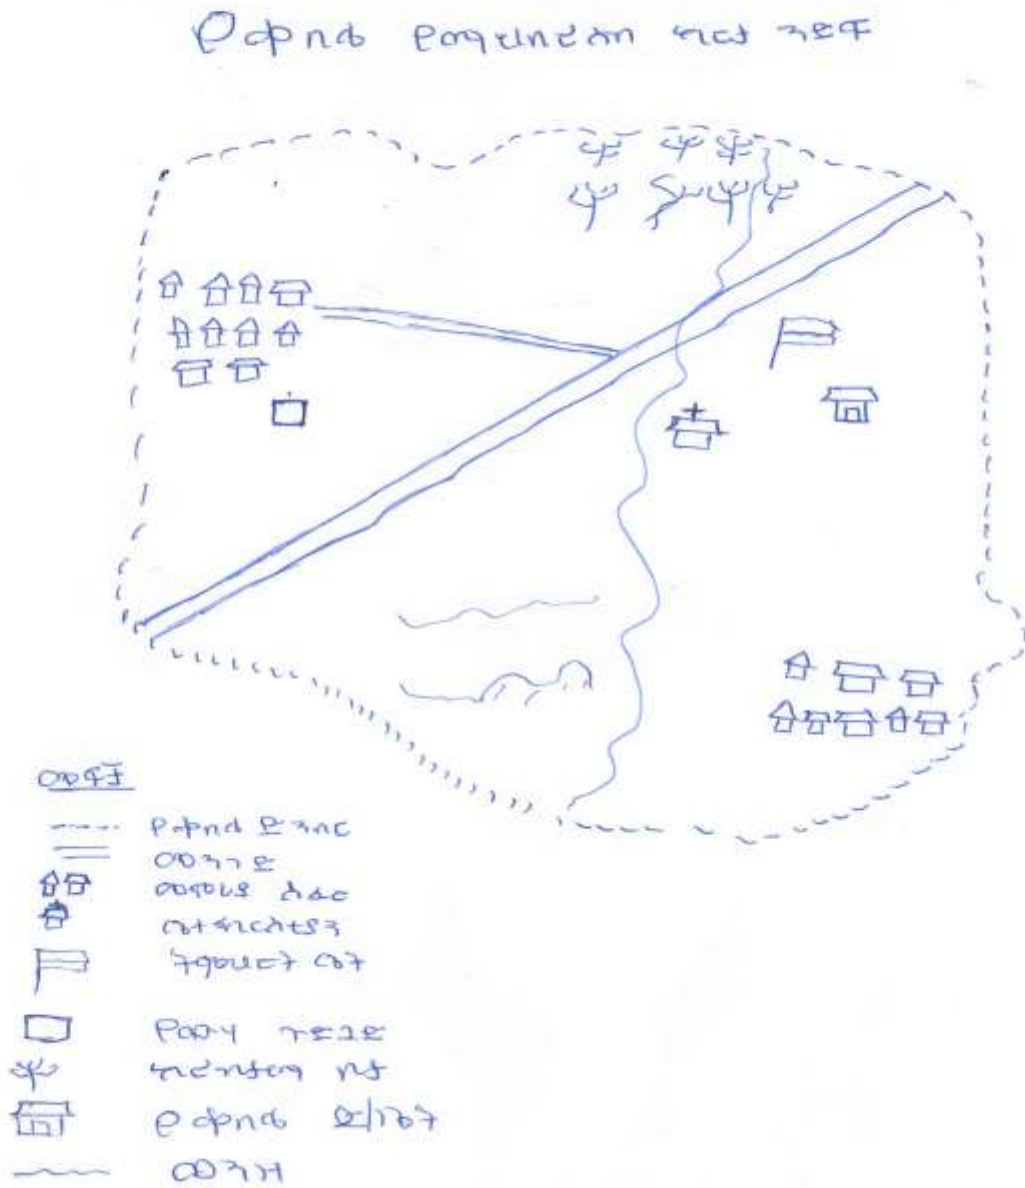 የቀበሌ የማህበረሰብ ካርታ ንድፍ
መፍቻ
የቀበሌ ድንበር
መንገድ
መኖሪያ ሰፈር
ቤተ ክርስቲያን
ትምህርት ቤት
የውሃ ጉድጓድ
ቦታ
የቀበሌ ጽ/ቤት
ወንዝ